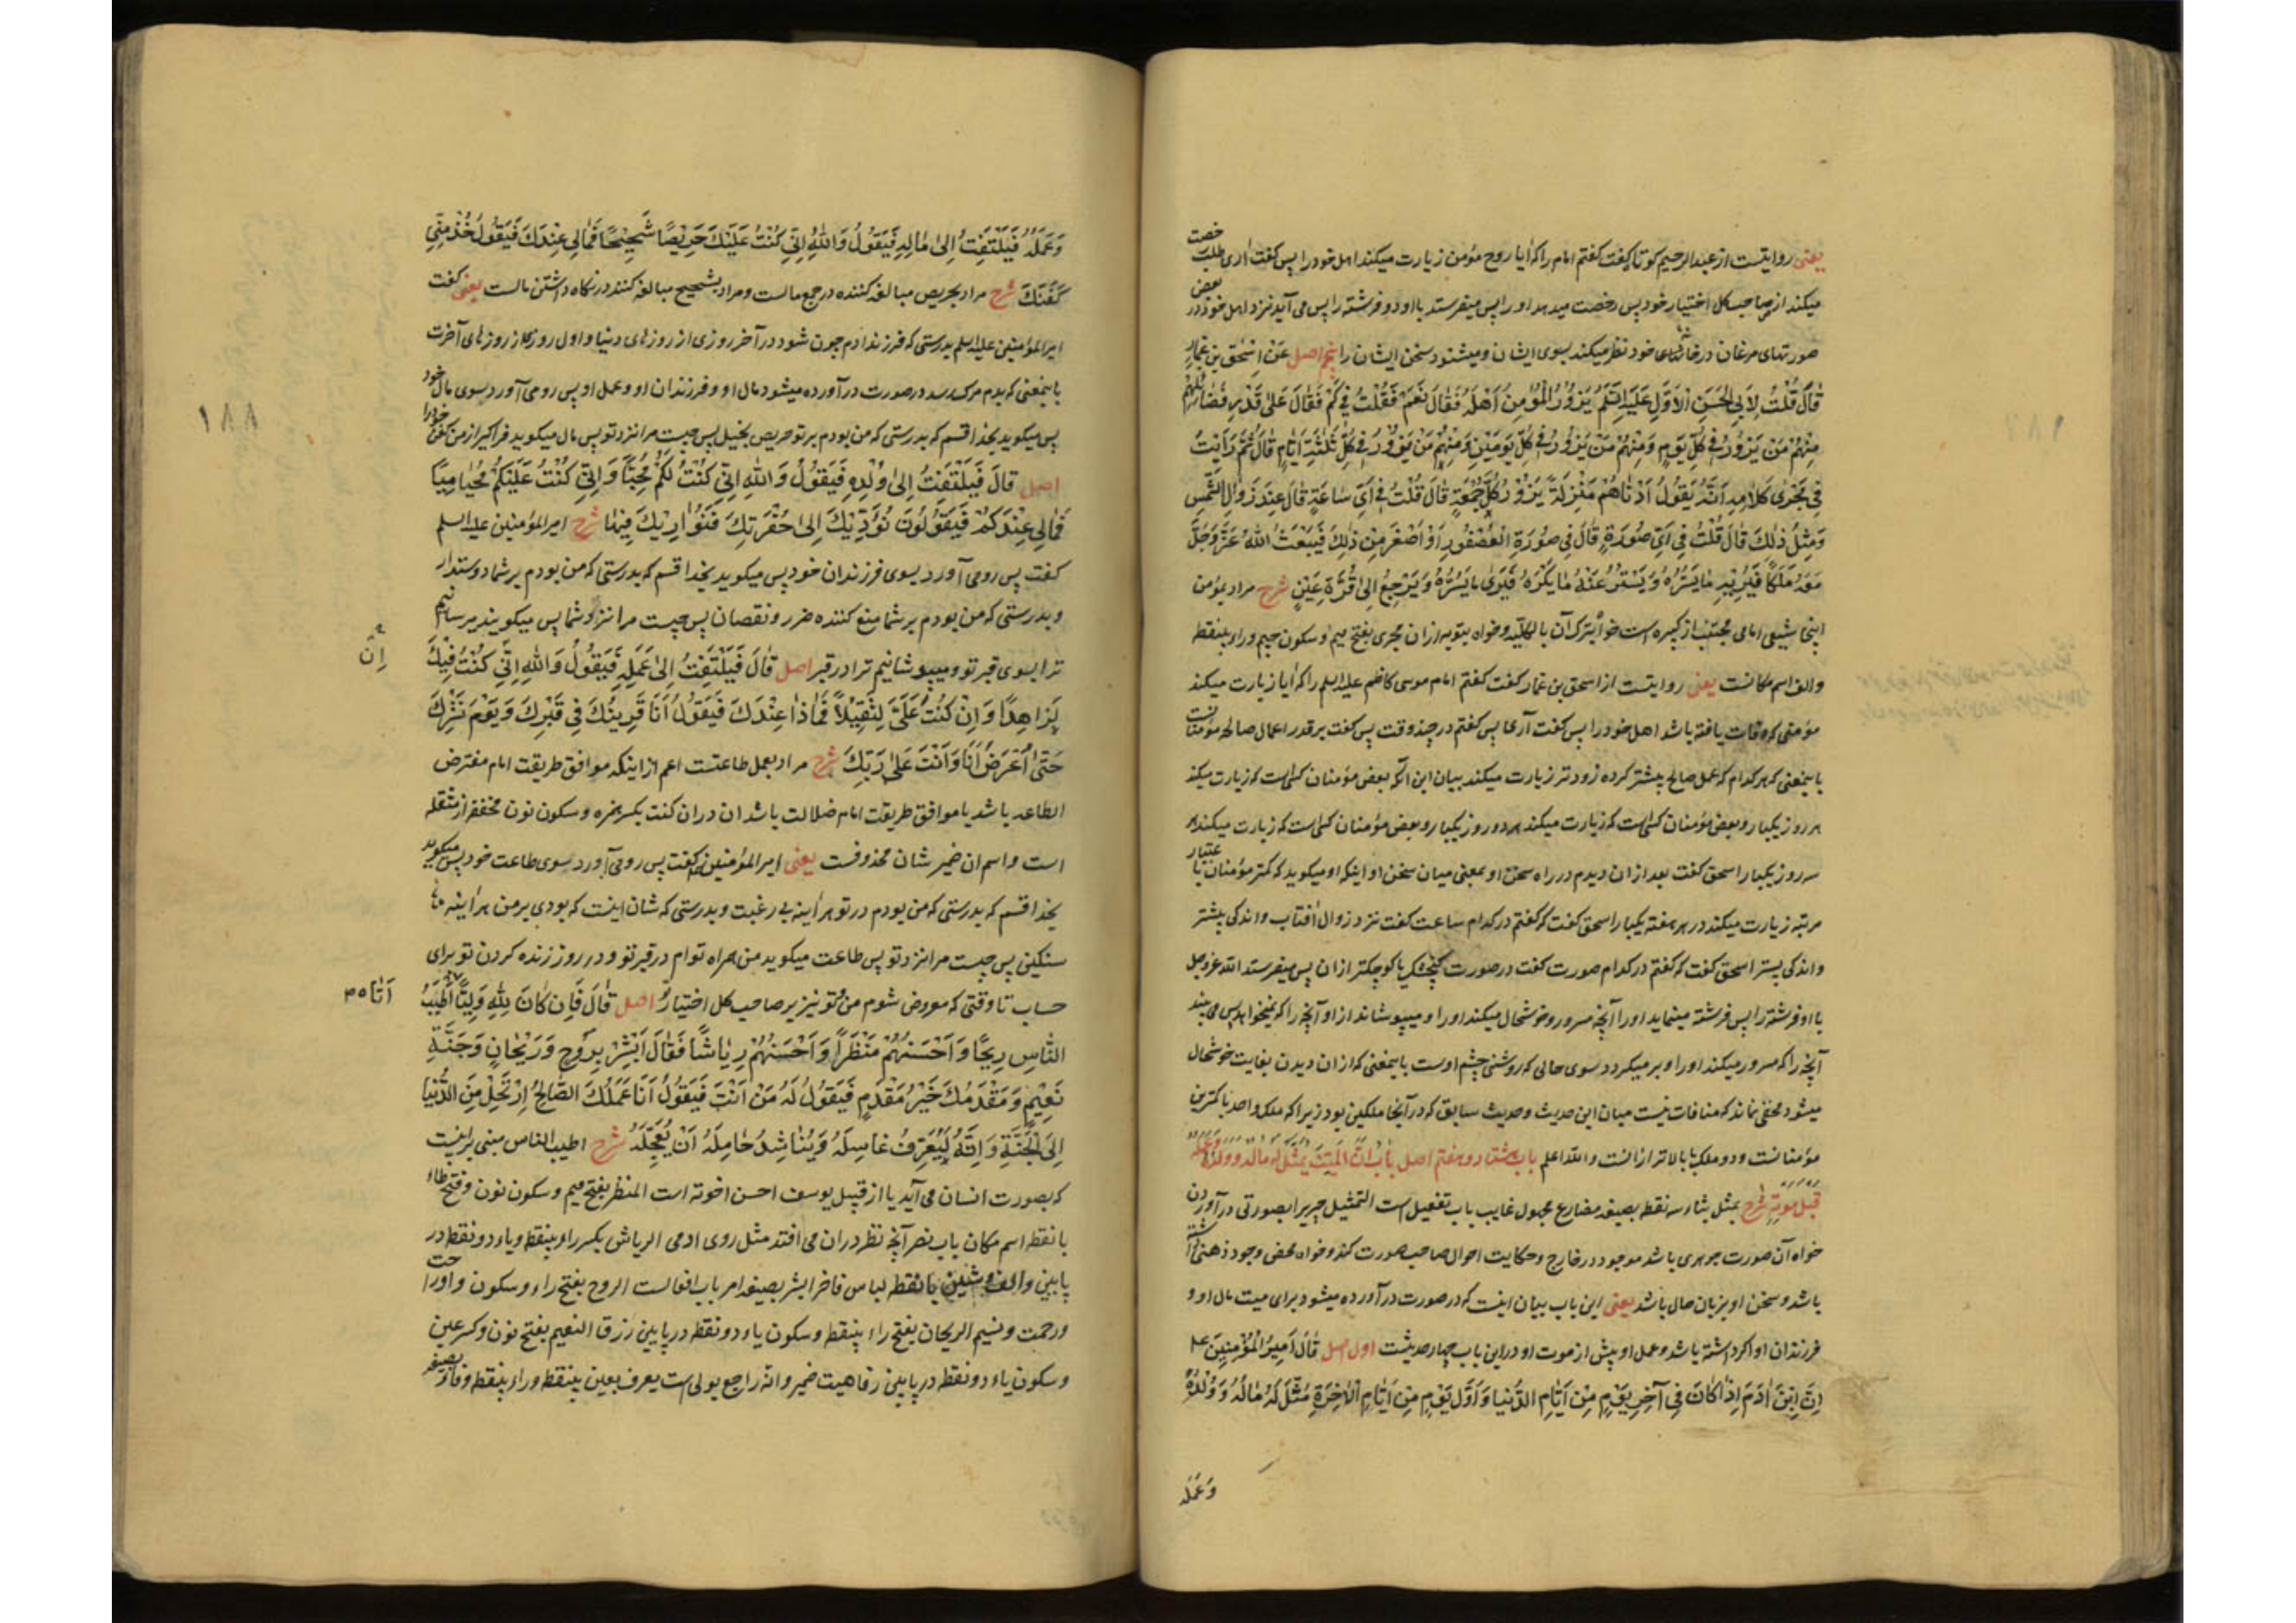 یعنی روایتست از عبدالرحیم کوتاه گفت گفتم امام را که آیا روح مؤمن زیارت میکند اهل خود را پس گفت آری طلب خصت
میکند از صاحب کل اختیار خود پس رخصت میدهد او را پس میفرستد با او دو فرشته را پس می آید نزد اهل خود در بعض
صورتهای مرغان در خانهای خود نظر میکند بسوی ایشان و میشنود سخن ایشان را پنجم اصل عَنْ اِسْحٰقَ بْنِ عَمّارٍ
قالَ قُلْتُ لِاَبِی الْحَسَنِ الْاَوَّلِ عَلَیْهِ السَّلَمُ یَزُورُ الْمُؤْمِنُ اَهْلَهُ فَقالَ نَعَمْ فَقُلْتُ فِی کَمْ فَقالَ عَلی قَدْرِ فَضائِلِهِمْ
مِنْهُمْ مَنْ یَزُورُ فِی کُلِّ یَوْمٍ وَمِنْهُمْ مَنْ یَزُورُ فِی کُلِّ یَوْمَیْنِ وَمِنْهُمْ مَنْ یَزُورُ فِی کُلِّ ثَلٰثَةِ اَیّامٍ قالَ ثُمَّ رَاَیْتُ
فِی مَجْرٰی کَلامِهِ اَنَّهُ یَقُولُ اَدْناهُمْ مَنْزِلَةً یَزُورُ کُلَّ جُمْعَةٍ قالَ قُلْتُ فِی اَیِّ ساعَةٍ قالَ عِنْدَ زَوالِ الشَّمْسِ
وَمِثْلَ ذٰلِکَ قالَ قُلْتُ فِی اَیِّ صُورَةٍ قالَ فِی صُورَةِ الْعُصْفُورِ اَوْ اَصْغَرَ مِنْ ذٰلِکَ فَیَبْعَثُ اللهُ عَزَّ وَجَلَّ
مَعَهُ مَلَکاً فَیُرِیهِ ما یَسُرُّهُ وَیَسْتُرُ عَنْهُ ما یَکْرَهُ فَیَرٰی ما یَسُرُّهُ وَیَرْجِعُ اِلٰی قُرَّةِ عَیْنٍ شرح مراد بمؤمن
اینجا شیعی امامی مجتنب از کبیره است خواه بترک آن بالکلیه و خواه بتوبه از ان مجری بفتح میم و سکون جیم و راء بینقطه
والف اسم مکانست یعنی روایتست از اسحق بن عمار گفت گفتم امام موسی کاظم علیه السلم را که آیا زیارت میکند
مؤمنی که وفات یافته باشد اهل خود را پس گفت آری پس گفتم در چند وقت پس گفت بر قدر اعمال صالحه مؤمنانست
باینمعنی که هر کدام که عمل صالح بیشتر کرده زودتر زیارت میکند بیان این آنکه بعض مؤمنان کسی است که زیارت میکند
هر روز یکبار و بعض مؤمنان کسی است که زیارت میکند هر دو روز یکبار و بعض مؤمنان کسی است که زیارت میکند هر
سه روز یکبار اسحق گفت بعد از ان دیدم در راه سخن او بمعنی میان سخن او اینکه او میگوید که کمتر مؤمنان باعتبار
مرتبه زیارت میکند در هر هفته یکبار اسحق گفت که گفتم در کدام ساعت گفت نزد زوال آفتاب و اندکی پیشتر
و اندکی پستر اسحق گفت که گفتم در کدام صورت گفت در صورت گنجشک یا کوچکتر از ان پس میفرستد الله عزوجل
با او فرشته را پس فرشته مینماید او را آنچه مسرور و خوشحال میکند او را و میپوشاند از او آنچه را که نمیخواهد پس می بیند
آنچه را که مسرور میکند او را و بر میگردد سوی حالی که روشنی چشم اوست باینمعنی که از ان دیدن بغایت خوشحال
میشود مخفی نماند که منافات نیست میان این حدیث و حدیث سابق که در آنجا ملکین بود زیرا که ملک واحد با کمترین
مؤمنانست و دو ملک با بالاتر از انست والله اعلم باب هشتاد و هفتم اصل بابُ اَنَّ الْمَیِّتَ یُمَثَّلُ لَهُ مالُهُ وَوَلَدُهُ وَعَمَلُهُ
قَبْلَ مَوْتِهِ شرح یمثل بثاء سه نقطه بصیغه مضارع مجهول غایب باب تفعیل است التمثیل چیزی را بصورتی در آوردن
خواه آن صورت جوهری باشد موجود در خارج و حکایت احوال صاحب صورت کند و خواه محض وجود ذهنی داشته
باشد و سخن او بزبان حال باشد یعنی این باب بیان اینست که در صورت در آورده میشود برای میت مال او و
فرزندان او اگر داشته باشد و عمل او پیش از موت او و در این باب چهار حدیثست اول اصل قالَ اَمِیرُ الْمُؤْمِنِینَ ع
اِنَّ ابْنَ اٰدَمَ اِذا کانَ فِی آخِرِ یَوْمٍ مِنْ اَیّامِ الدُّنْیا وَاَوَّلِ یَوْمٍ مِنْ اَیّامِ الْاٰخِرَةِ مُثِّلَ لَهُ مالُهُ وَوُلْدُهُ
وَعَمَلُهُ
وَعَمَلُهُ فَیَلْتَفِتُ اِلیٰ مالِهِ فَیَقُولُ وَاللهِ اِنّی کُنْتُ عَلَیْکَ حَرِیصًا شَحِیحًا فَمالِی عِنْدَکَ فَیَقُولُ خُذْ مِنّی
کَفَنَکَ شرح مراد بحریص مبالغه کننده در جمع مالست و مراد بشحیح مبالغه کننده در نگاه داشتن مالست یعنی گفت
امیر المؤمنین علیه السلم بدرستی که فرزند آدم چون شود در آخر روزی از روزهای دنیا و اول روزی از روزهای آخرت
باینمعنی که بدم مرگ رسد در صورت در آورده میشود مال او و فرزندان او و عمل او پس رو می آورد سوی مال خود
پس میگوید بخدا قسم که بدرستی که من بودم بر تو حریص بخیل پس چیست مرا نزد تو پس مال میگوید فراگیر از من کفن خود را
اصل قالَ فَیَلْتَفِتُ اِلیٰ وُلْدِهِ فَیَقُولُ وَاللهِ اِنّی کُنْتُ لَکُمْ مُحِبًّا وَاِنّی کُنْتُ عَلَیْکُمْ مُحامِیًا
فَمالِی عِنْدَکُمْ فَیَقُولُونَ نُؤَدِّیکَ اِلیٰ حُفْرَتِکَ فَنُوارِیکَ فِیها شرح امیر المؤمنین علیه السلم
گفت پس رو می آورد بسوی فرزندان خود پس میگوید بخدا قسم که بدرستی که من بودم بر شما دوستدار
و بدرستی که من بودم بر شما منع کننده ضرر و نقصان پس چیست مرا نزد شما پس میگویند میرسانیم
ترا بسوی قبر تو و میپوشانیم ترا در قبر اصل قالَ فَیَلْتَفِتُ اِلیٰ عَمَلِهِ فَیَقُولُ وَاللهِ اِنّی کُنْتُ فِیکَ
لَزاهِدًا وَاِنْ کُنْتَ عَلَیَّ لَثَقِیلاً فَماذا عِنْدَکَ فَیَقُولُ اَنَا قَرِینُکَ فِی قَبْرِکَ وَیَوْمَ نَشْرِکَ
اِنَّ
حَتّیٰ اُعْرَضَ اَنَا وَاَنْتَ عَلیٰ رَبِّکَ شرح مراد بعمل طاعتست اعم از اینکه موافق طریقت امام مفترض
الطاعه باشد یا موافق طریقت امام ضلالت باشد ان در ان کنت بکسر همزه و سکون نون مخففه از مثقله
است و اسم ان ضمیر شان محذوفست یعنی امیر المؤمنین گفت پس رو می آورد سوی طاعت خود پس میگوید
بخدا قسم که بدرستی که من بودم در تو هر آینه بی رغبت و بدرستی که شان اینست که بودی بر من هر آینه
سنگین پس چیست مرا نزد تو پس طاعت میگوید من همراه توام در قبر تو و در روز زنده کردن تو برای
حساب تا وقتی که معروض شوم من و تو نیز بر صاحب کل اختیار تو اصل قالَ فَاِن کانَ لِلّٰهِ وَلِیًّا اَطْیَبُ
اَتاهُ
النّاسِ رِیحًا وَاَحْسَنُهُمْ مَنْظَراً وَاَحْسَنُهُمْ رِیاشاً فَقالَ اَبْشِرْ بِرَوْحٍ وَرَیْحانٍ وَجَنَّةِ
نَعِیمٍ وَمَقْدَمُکَ خَیْرُ مَقْدَمٍ فَیَقُولُ لَهُ مَنْ اَنْتَ فَیَقُولُ اَنَا عَمَلُکَ الصّالِحُ اِرْتَحِلْ مِنَ الدُّنْیا
اِلَی الْجَنَّةِ وَاِنَّهُ لَیَعْرِفُ غاسِلَهُ وَیُناشِدُ حامِلَهُ اَنْ یُعَجِّلَهُ شرح اطیب الناس مبنی بر اینست
که بصورت انسان می آید یا از قبیل یوسف احسن اخوته است المنظر بفتح میم و سکون نون و فتح ظاء
با نقطه اسم مکان باب نصر آنچه نظر در ان می افتد مثل روی ادمی الریاش بکسر راء بینقطه و یاء دو نقطه در
پایین والف و شین با نقطه لباس فاخر ابشر بصیغه امر باب افعالست الروح بفتح راء و سکون واو راحت
و رحمت و نسیم الریحان بفتح راء بینقطه و سکون یاء دو نقطه در پایین رزق النعیم بفتح نون و کسر عین
و سکون یاء دو نقطه در پایین رفاهیت ضمیر وانه راجع بولی است یعرف بعین بینقطه وراء بینقطه وفاء بصیغه
۱۸۸